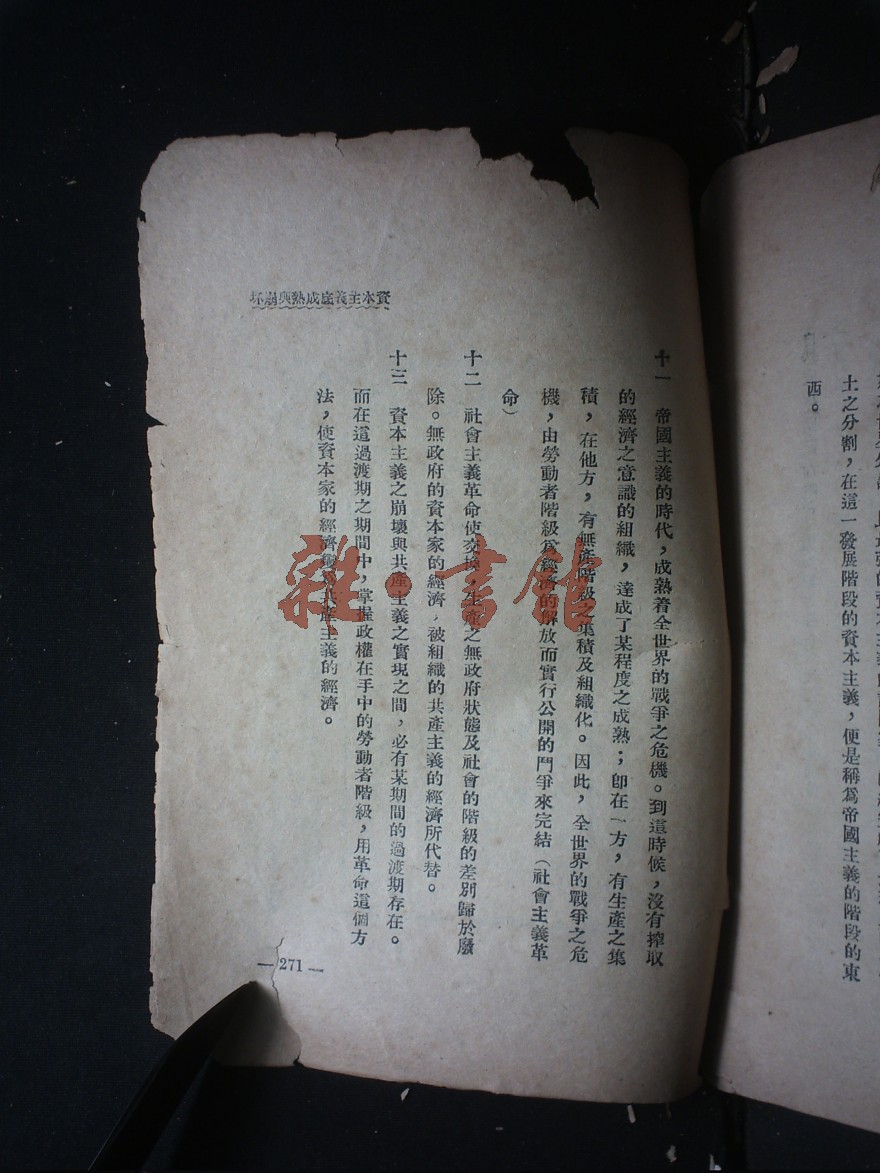 土之分割，在這一發展階段的資本主義，便是稱爲帝國主義的階段的東
西。
資本主義底成熟與崩坏
十一　帝國主義的時代，成熟着全世界的戰爭之危機。到這時候，沒有搾取
的經濟之意識的組織，達成了某程度之成熟；卽在一方，有生產之集
積，在他方，有無產階級之集積及組織化。因此，全世界的戰爭之危
機，由勞動者階級爲經濟的解放而實行公開的鬥爭來完結（社會主義革
命）
十二　社會主義革命使交換，生產之無政府狀態及社會的階級的差別歸於廢
除。無政府的資本家的經濟，被組織的共產主義的經濟所代替。
十三　資本主義之崩壞與共產主義之實現之間，必有某期間的過渡期存在。
而在這過渡期之期間中，掌握政權在手中的勞動者階級，用革命這個方
法，使資本家的經濟變爲共產主義的經濟。
— 271 —
雜·書館